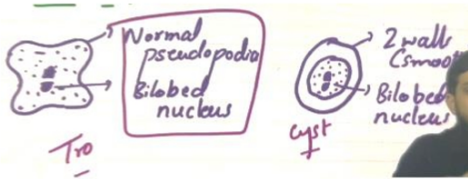 Normal
pseudopodia
Bilobed
nucleus
Tro
2 walls
(smoot
Bilobed
nucleus
Cyst